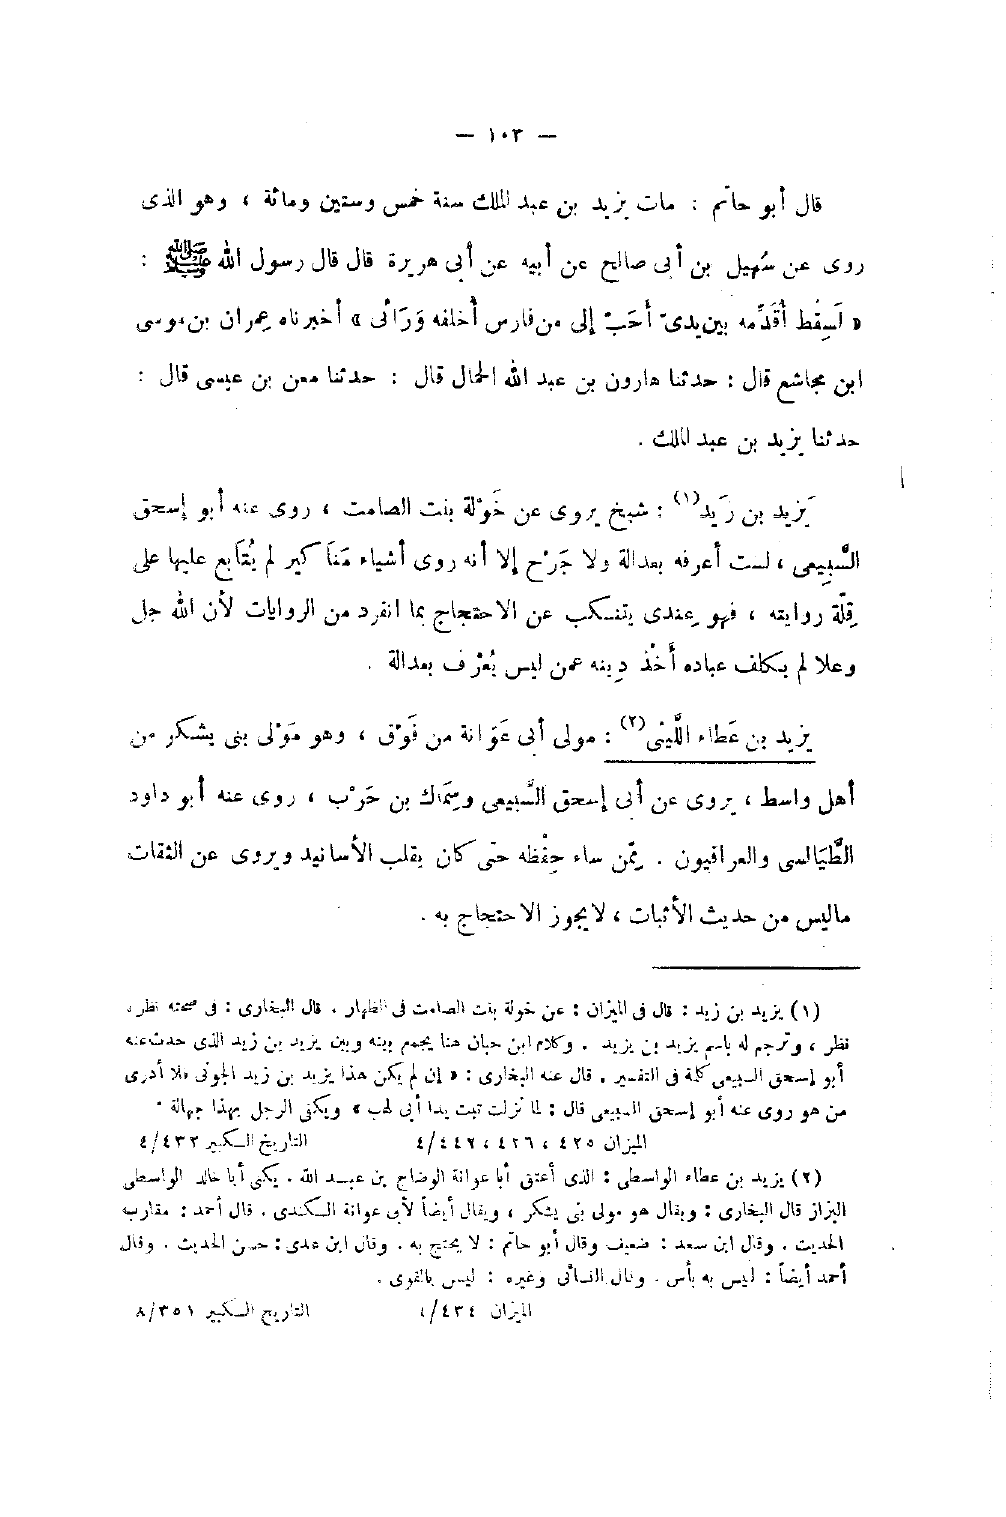 — ١٠٣ —
قال أبو حاتم : مات يزيد بن عبد الملك سنة خمس وستين ومائة ، وهو الذى
روى عن سُهيل بن أبى صالح عن أبيه عن أبى هريرة قال قال رسول الله ﷺ :
« لَسِقْط أُقَدِّمه بين يدىّ أحَبّ إلى من فارس أُخلفه وَرَائى » أخبرناه عمران بن موسى
ابن مجاشع قال : حدثنا هارون بن عبد الله الحمال قال : حدثنا معن بن عيسى قال :
حدثنا يزيد بن عبد الملك .
يَزيد بن زَيد(١) : شيخ يروى عن خَوْلة بنت الصامت ، روى عنه أبو إسحق
السَّبِيعى ، لست أعرفه بعدالة ولا جَرْح إلا أنه روى أشياء مَنَاكير لم يُتَابع عليها على
قِلّة روايته ، فهو عندى يتنسكب عن الاحتجاج بما انفرد من الروايات لأن الله جل
وعلا لم يكلف عباده أَخْذ دينه عمن ليس يُعْرَف بعدالة .
يزيد بن عَطاء اللَّيْثى(٢) : مولى أبى عَوَانة من فَوْق ، وهو مَوْلى بنى يشكر من
أهل واسط ، يروى عن أبى إسحق السَّبيعى وسِمَاك بن حَرْب ، روى عنه أبو داود
الطَّيَالسى والعراقيون . مِمّن ساء حِفْظه حتى كان يقلب الأسانيد ويروى عن الثقات
ماليس من حديث الأثبات ، لا يجوز الاحتجاج به .
(١) يزيد بن زيد : قال فى الميزان : عن خولة بنت الصامت فى الظهار . قال البخارى : فى صحته نظر،
نظر ، وترجم له باسم يزيد بن يزيد . وكلام ابن حبان هنا يجمع بينه وبين يزيد بن زيد الذى حدث عنه
أبو إسحق السبيعى كلمة فى التفسير . قال عنه البخارى : « إن لم يكن هذا يزيد بن زيد الجونى فلا أدرى
من هو روى عنه أبو إسحق السبيعى قال : لما نزلت تبت يدا أبى لهب » ويكفى الرجل بهذا جهالة .
الميزان ٤٢٥ ، ٤٢٦ ، ٤/٤٤٢ التاريخ الكبير ٤/٤٣٢
(٢) يزيد بن عطاء الواسطى : الذى أعتق أبا عوانة الوضاح بن عبد الله . يكنى أبا خالد الواسطى
البزاز قال البخارى : ويقال هو مولى بنى يشكر ، ويقال أيضاً لأبى عوانة الكندى . قال أحمد : مقارب
الحديث . وقال ابن سعد : ضعيف وقال أبو حاتم : لا يحتج به . وقال ابن عدى : حسن الحديث . وقال
أحمد أيضاً : ليس به بأس . وقال النسائى وغيره : ليس بالقوى .
الميزان ٤/٤٣٤ التاريخ الكبير ٨/٣٥١